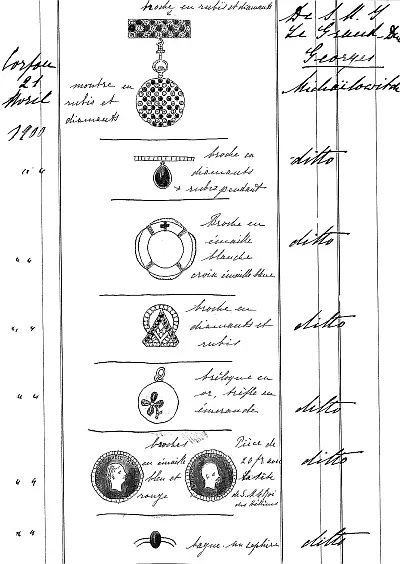 broche en rubis et diamants
De S. M. G
Le Grand-Duc
Georges
Michaïlowitch
Corfou
21
Avril
1900
montre en
rubis et
diamants
" "
broche en
diamants
rubis pendant
ditto
" "
Broche en
émaille
blanche
croix émaille bleue
ditto
" "
broche en
diamants et
rubis
ditto
" "
bréloque en
or, trèfle en
émeraudes
ditto
" "
broches
en émaille
bleu et
rouge
Pièce de
20 fr avec
la tête
de S. M. le Roi
des Hélènes
ditto
" "
bague un saphire
ditto